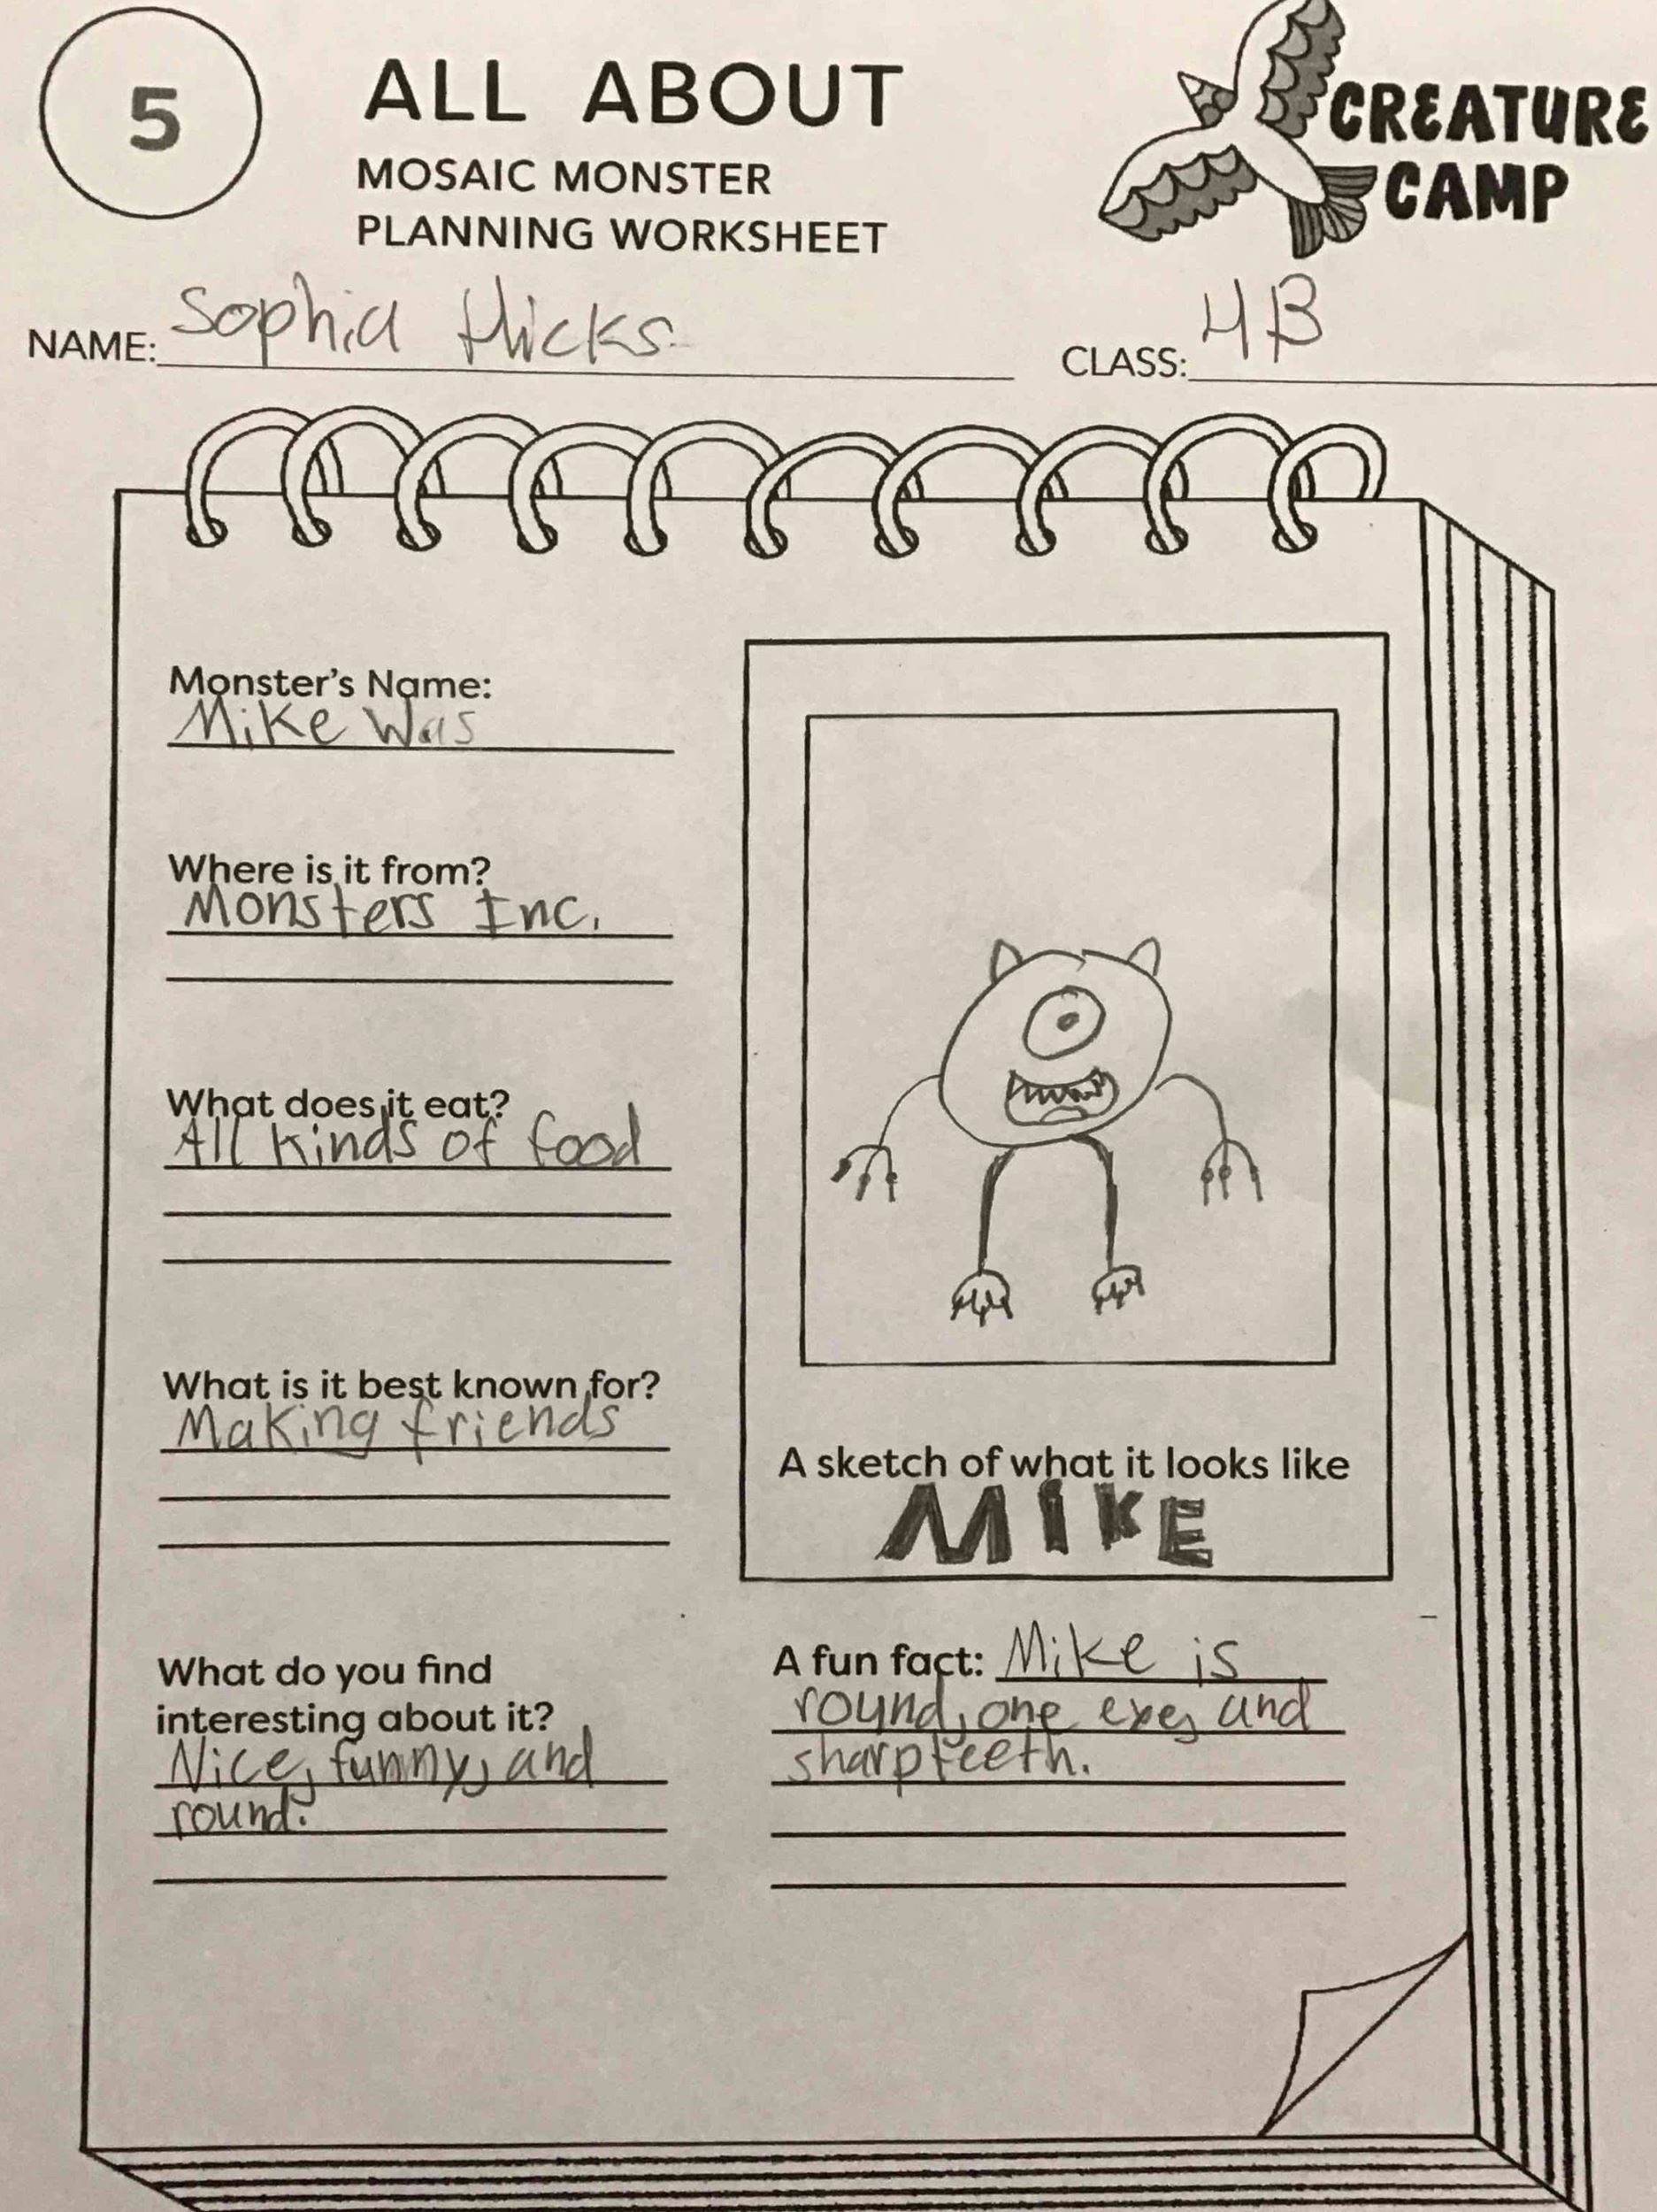 5
ALL ABOUT
MOSAIC MONSTER
PLANNING WORKSHEET
CREATURE
CAMP
NAME: Sophia Hicks
CLASS: 4B
Monster's Name:
Mike Was
Where is it from?
Monsters Inc.
What does it eat?
All kinds of food
What is it best known for?
Making friends
A sketch of what it looks like
MIKE
What do you find
interesting about it?
Nice, funny, and
round.
A fun fact: Mike is
round, one exe, and
sharp teeth.